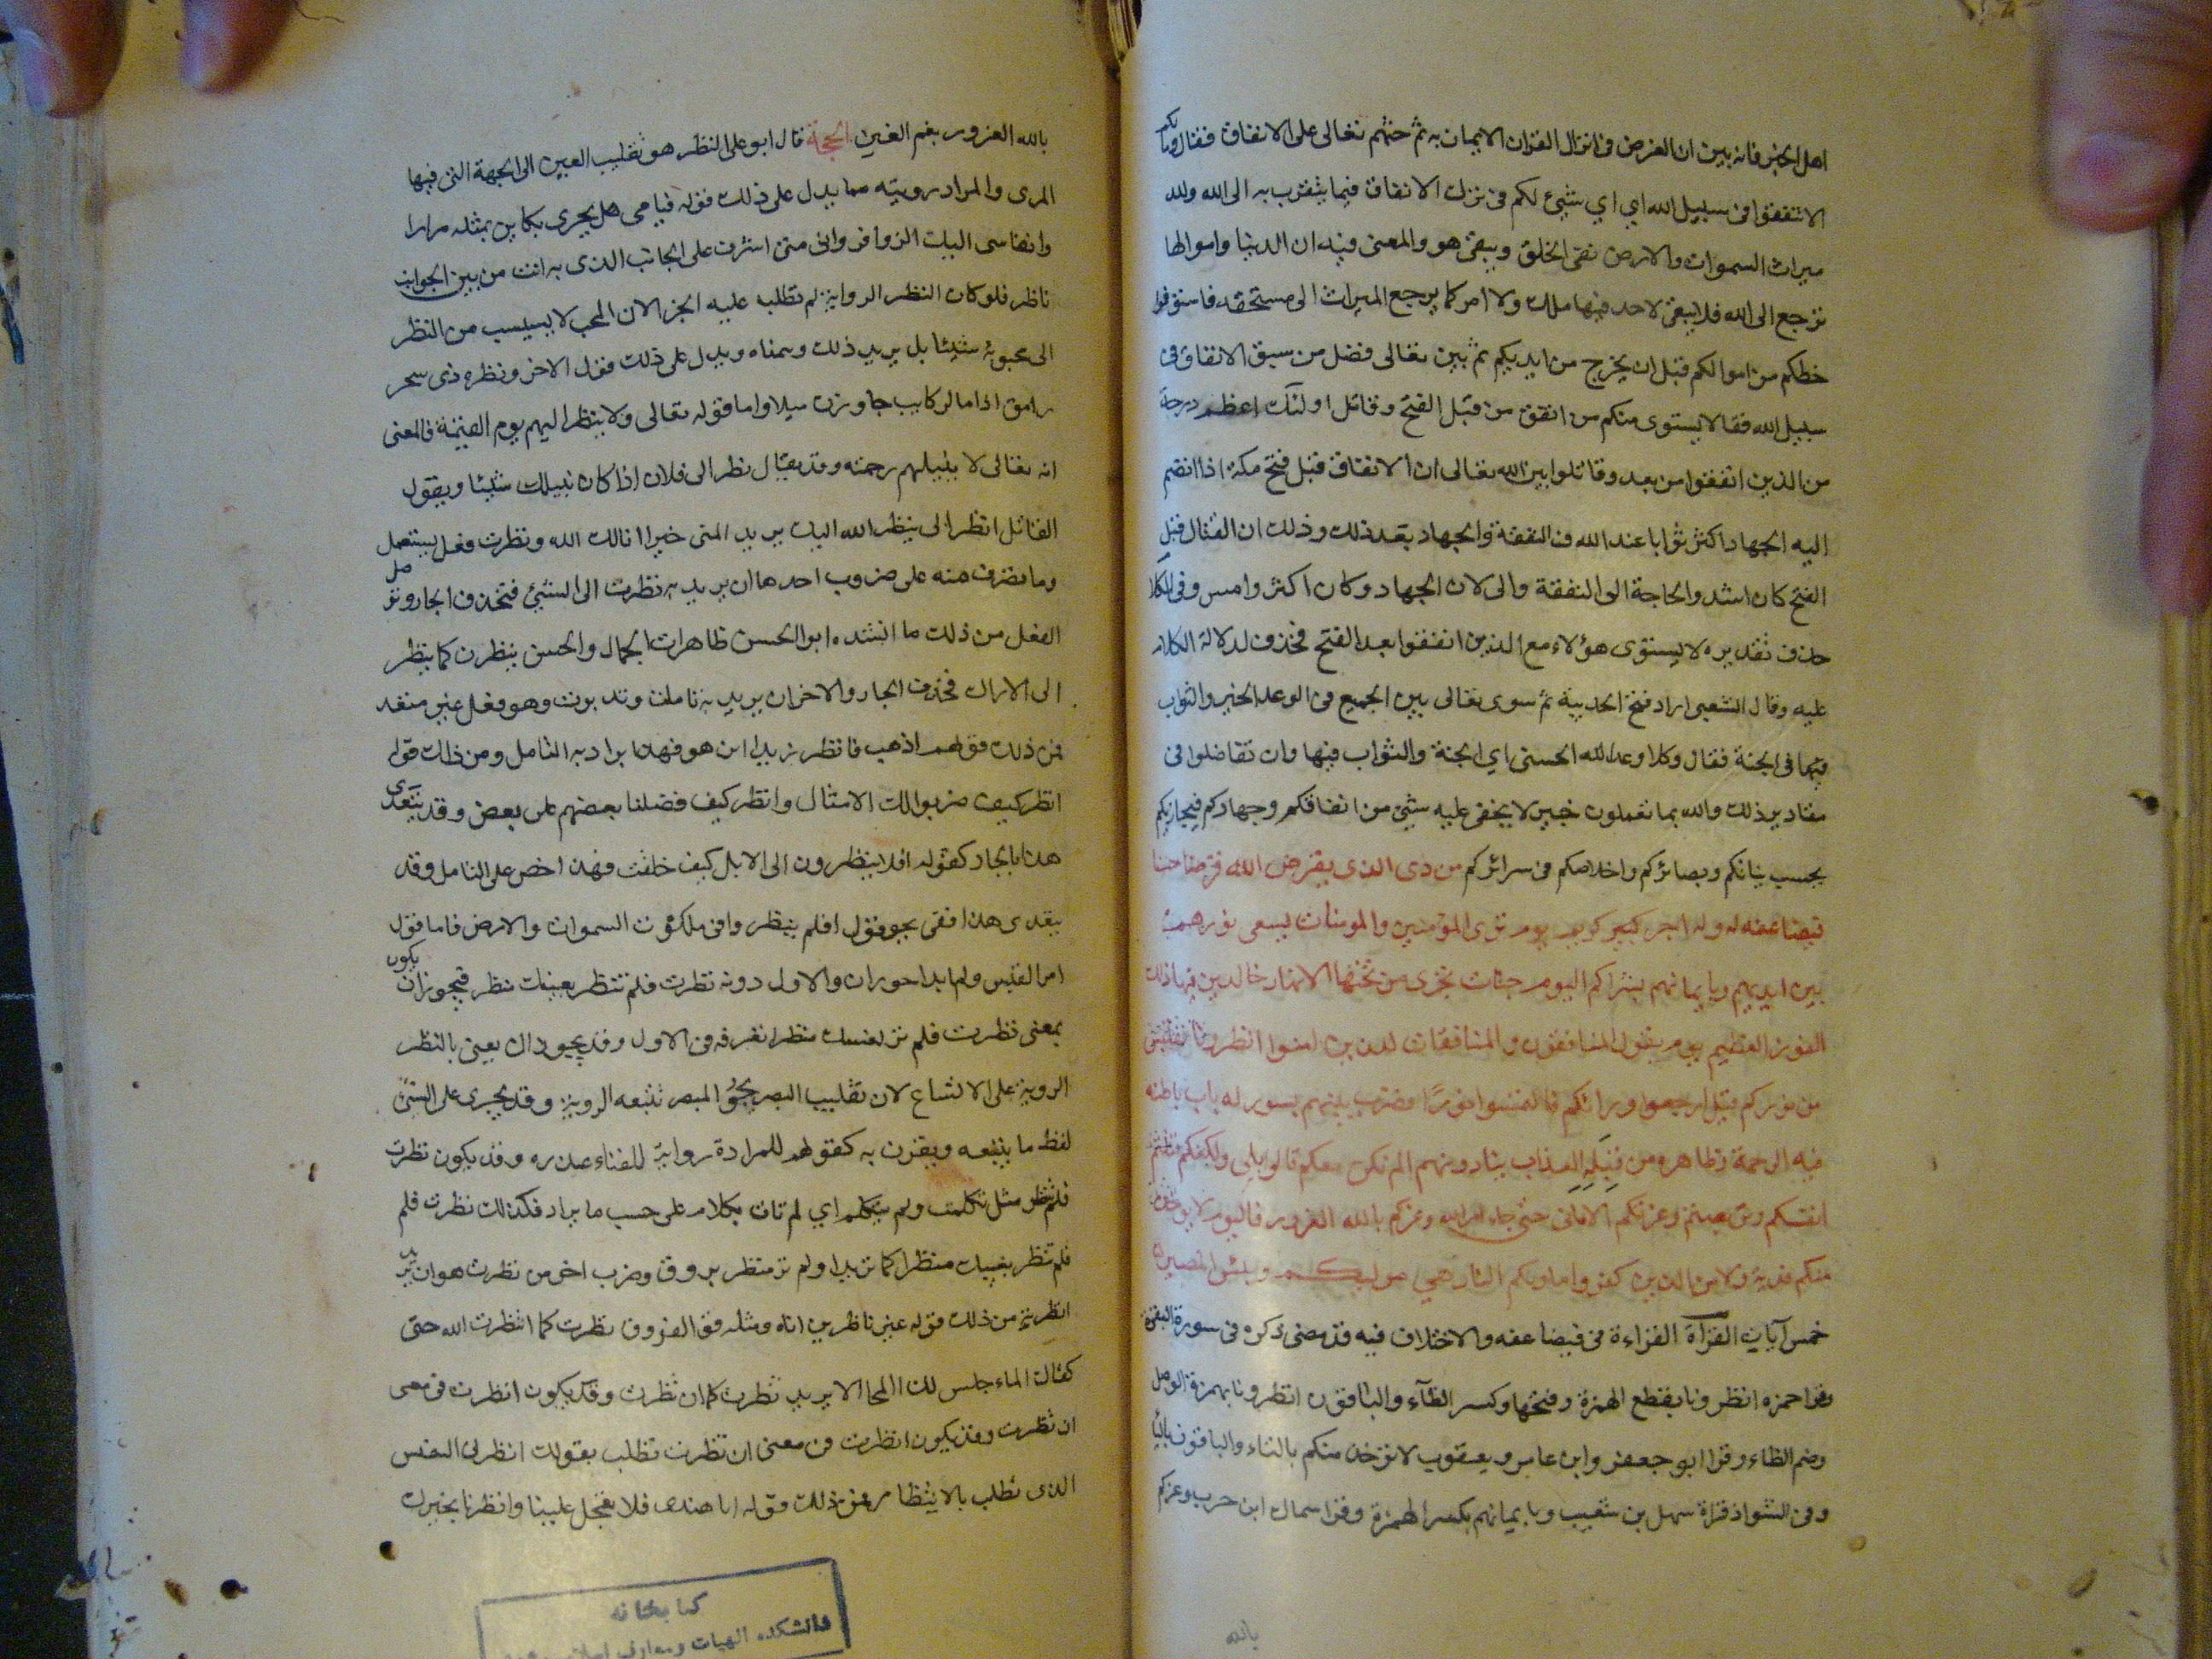 اهل الجبر فانه بين ان الغرض فى انزال القران الايمان به ثم حثهم تعالى على الانفاق فقال وما لكم
الا تنفقوا فى سبيل الله اي اي شيئ لكم فى ترك الانفاق فيما يتقرب به الى الله ولله
ميراث السموات والارض نفى الخلق ويبقى هو والمعنى فيه ان الدنيا واموالها
ترجع الى الله فلا يبقى لاحد فيها ملك ولا امر كما يرجع الميراث الى مستحقه فاستوفوا
حظكم من اموالكم قبل ان يخرج من ايديكم ثم بين تعالى فضل من سبق الانفاق فى
سبيل الله فقا لا يستوى منكم من انفق من قبل الفتح وقاتل اولئك اعظم درجة
من الذين انفقوا من بعد وقاتلوا بين الله تعالى ان الانفاق قبل فتح مكة اذا انضم
اليه الجهاد اكثر ثوابا عند الله من النفقة والجهاد بعد ذلك وذلك ان القتال قبل
الفتح كان اشد والحاجة الى النفقة والى لان الجهاد وكان اكثر وامس وفى الكلا
حذف تقديره لا يستوى هؤلاء مع الذين انفقوا بعد الفتح فحذف لدلالة الكلام
عليه وقال الشعبى اراد فتح الحديبية ثم سوى تعالى بين الجميع فى الوعد الخير والثواب
فيها فى الجنة فقال وكلا وعد الله الحسنى اي الجنة والثواب فيها وان تفاضلوا فى
مقادير ذلك والله بما تعملون خبير لا يخفى عليه شيئ من انفاقكم وجهادكم فيجازيكم
بحسب نياتكم وبصائركم واخلاصكم فى سرائركم من ذى الذى يقرض الله قرضا حسنا
فيضاعفه له وله اجر كبير كريم يوم ترى المؤمنين والمومنات يسعى نورهم
بين ايديهم وبايمانهم بشراكم اليوم جنات تجرى من تحتها الانهار خالدين فيها ذلك
الفوز العظيم يوم يقول المنافقون والمنافقات للذين امنوا انظرونا نقتبس
من نوركم قيل ارجعوا ورائكم فالتمسوا نورًا فضرب بينهم بسور له باب باطنه
فيه الرحمة وظاهره من قِبَلِهِ العذاب ينادونهم الم نكن معكم قالوا بلى ولكنكم فتنتم
انفسكم وتربصتم وغرتكم الامانى حتى جاء امر الله وغركم بالله الغرور فاليوم لا يوخذ
منكم فدية ولا من الذين كفروا ماويكم النار هي موليكم وبئس المصير
خمس آيات القرآة القراءة فى فيضاعفه والاختلاف فيه قد مضى ذكره فى سورة البقرة
وقرا حمزه انظرونا بقطع الهمزة وفتحها وكسر الظآء والباقون انظرونا بهمزة الوصل
وضم الظاء وقرا ابو جعفر وابن عامر ويعقوب لا تؤخذ منكم بالتاء والباقون باليا
وفى الشواذ قراة سهل بن شعيب وبايمانهم بكسر الهمزة وقرا سماك ابن حرب وغركم
بالله
بالله الغرور بضم الغين الحجة قال ابو على النظر هو تقليب العين الى الجهة التى فيها
المرى والمراد رويته مما يدل على ذلك قوله فيا مى هل يجرى بكاين بمثله مرارا
وانفاسى اليك الزوافر وانى متى اشرف على الجانب الذى به انت من بين الجوانب
ناظر فلو كان النظر الرواية لم تطلب عليه الجز الان المحب لا يسيسب من النظر
الى محبوبه شيئا بل يريد ذلك ويمناه ويدل على ذلك قول الاخر ونظره ذى سحر
رامق اذا ما لركايب جاوزن ميلا واما قوله تعالى ولا ينظر اليهم يوم القيمة فالمعنى
انه تعالى لا ينيلهم رحمته وقد يقال نظر الى فلان اذا كان نييلك شيئا ويقول
القائل انظر الى ينظر الله اليك يريد المنى خيرا انالك الله ونظرت فعل يستعمل
وما تصرف منه على ضروب احدها ان يريد به نظرت الى الشيئ فتحذف الجار وتوصل
الفعل من ذلك ما انشده ابو الحسن ظاهرات الجمال والحسن ينظرن كما ينظر
الى الاراك فحذف الجار والاخر ان يريد به تاملت وتدبرت وهو فعل غير متعد
فمن ذلك قولهم اذهب فانظر زيدا اين هو فهذا يراد به التامل ومن ذلك قوله
انظر كيف ضربوا لك الامثال وانظر كيف فضلنا بعضهم على بعض وقد يتعدى
هذا بالجار كقوله افلا ينظرون الى الابل كيف خلقت فهذا اخص على التامل وقد
يتعدى هذا افى نحو قوله افلم ينظروا فى ملكوت السموات والارض فاما قول
امر القيس ولما بدا حوران والاول دونه نظرت فلم تنظر بعينك منظر فيجوز ان يكون
بمعنى نظرت فلم تر بعينيك منظرا تعرفه فى الاول وقد يجوز ان يعنى بالنظر
الروية على الاتساع لان تقليب البصر نحوُ المبصر تتبعه الروية وقد يجرى على الشئ
لفظ ما يتبعه ويقرن به كقولهم للمزادة رواية للفناء عذره وقد يكون نظرت
فلم تنظر مثل تكلمت ولم يتكلم اي لم تات بكلام على حسب ما يراد فكذلك نظرت فلم
فلم تنظر بعينيك منظرا كما تريدا ولم تر منظر يروق وضرب اخر من نظرت هو ان يريد
انظر به من ذلك قوله غير ناظرين اناه ومثله قول الفرزوق نظرت كما انتظرت الله حتى
كفاك الماء جلس لك المحالا يريد نظرت كما ان نظرت وقد يكون انظرت فى معى
ان نظرت وقد يكون انظرت فى معنى ان نظرت تطلب بقولك انظرنى التنفس
الذى تطلب بالانتظار فمن ذلك قوله ابا هند فلا تعجل علينا وانظرنا نخبرك
كتابخانه
دانشكده الهيات ومعارف